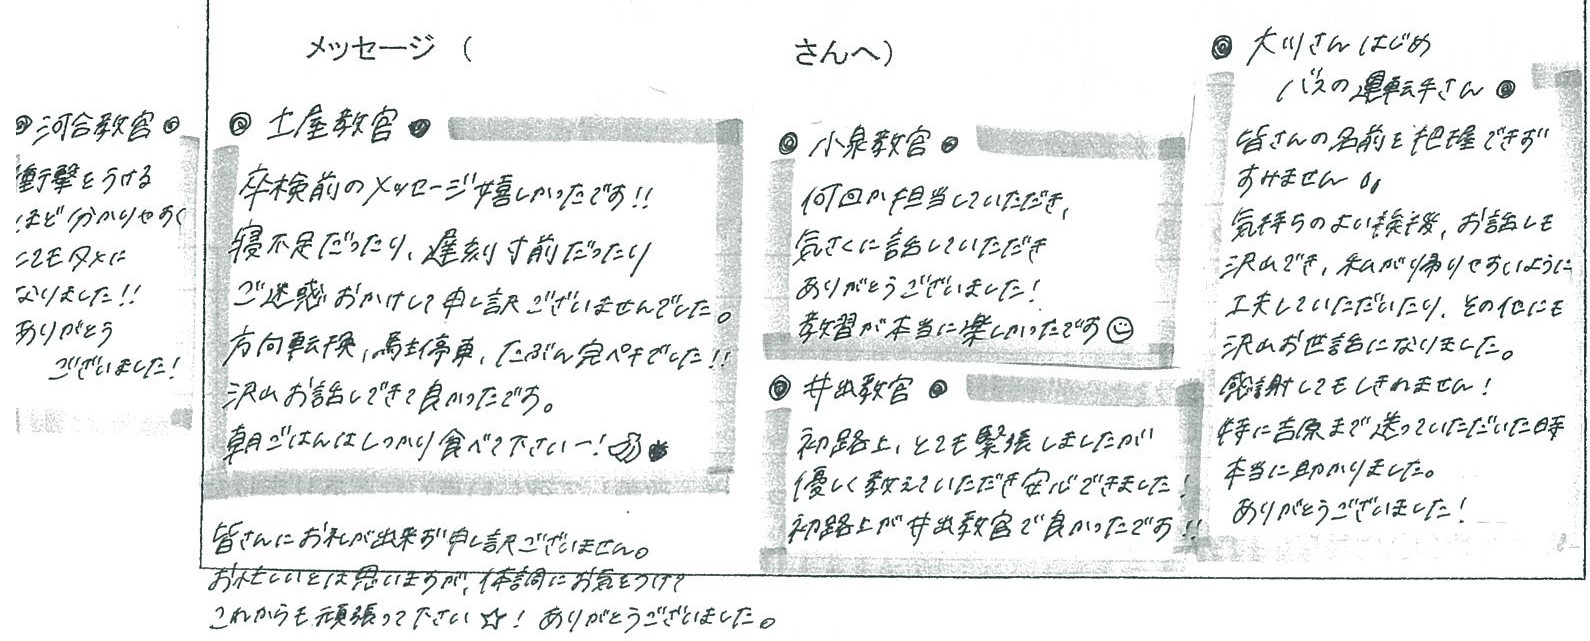 メッセージ（　　　さんへ）
◎河合教官◎
衝撃をうける
ほど分かりやすく
とてもタメに
なりました!!
ありがとう
ございました!
◎ 土屋教官 ◎
卒検前のメッセージ嬉しかったです!!
寝不足だったり、遅刻寸前だったり
ご迷惑おかけして申し訳ございませんでした。
方向転換、駐停車、たぶん完ペキでした!!
沢山お話しできて良かったです。
朝ごはんはしっかり食べて下さいー!
皆さんにお礼が出来ず申し訳ございません。
お忙しいとは思いますが、体調にお気をつけて
これからも頑張って下さい☆! ありがとうございました。
◎ 小泉教官 ◎
何回か担当していただき、
気さくに話していただき
ありがとうございました!
教習が本当に楽しかったです☺
◎ 井出教官 ◎
初路上、とても緊張しましたが
優しく教えていただき安心できました!
初路上が井出教官で良かったです!!
◎ 大川さんはじめ
バスの運転手さん ◎
皆さんの名前を把握できず
すみません
気持ちのよい挨拶、お話しも
沢山でき、私が帰りやすいように
工夫していただいたり、その他にも
沢山お世話になりました。
感謝してもしきれません!
特に吉原まで送っていただいた時
本当に助かりました。
ありがとうございました!